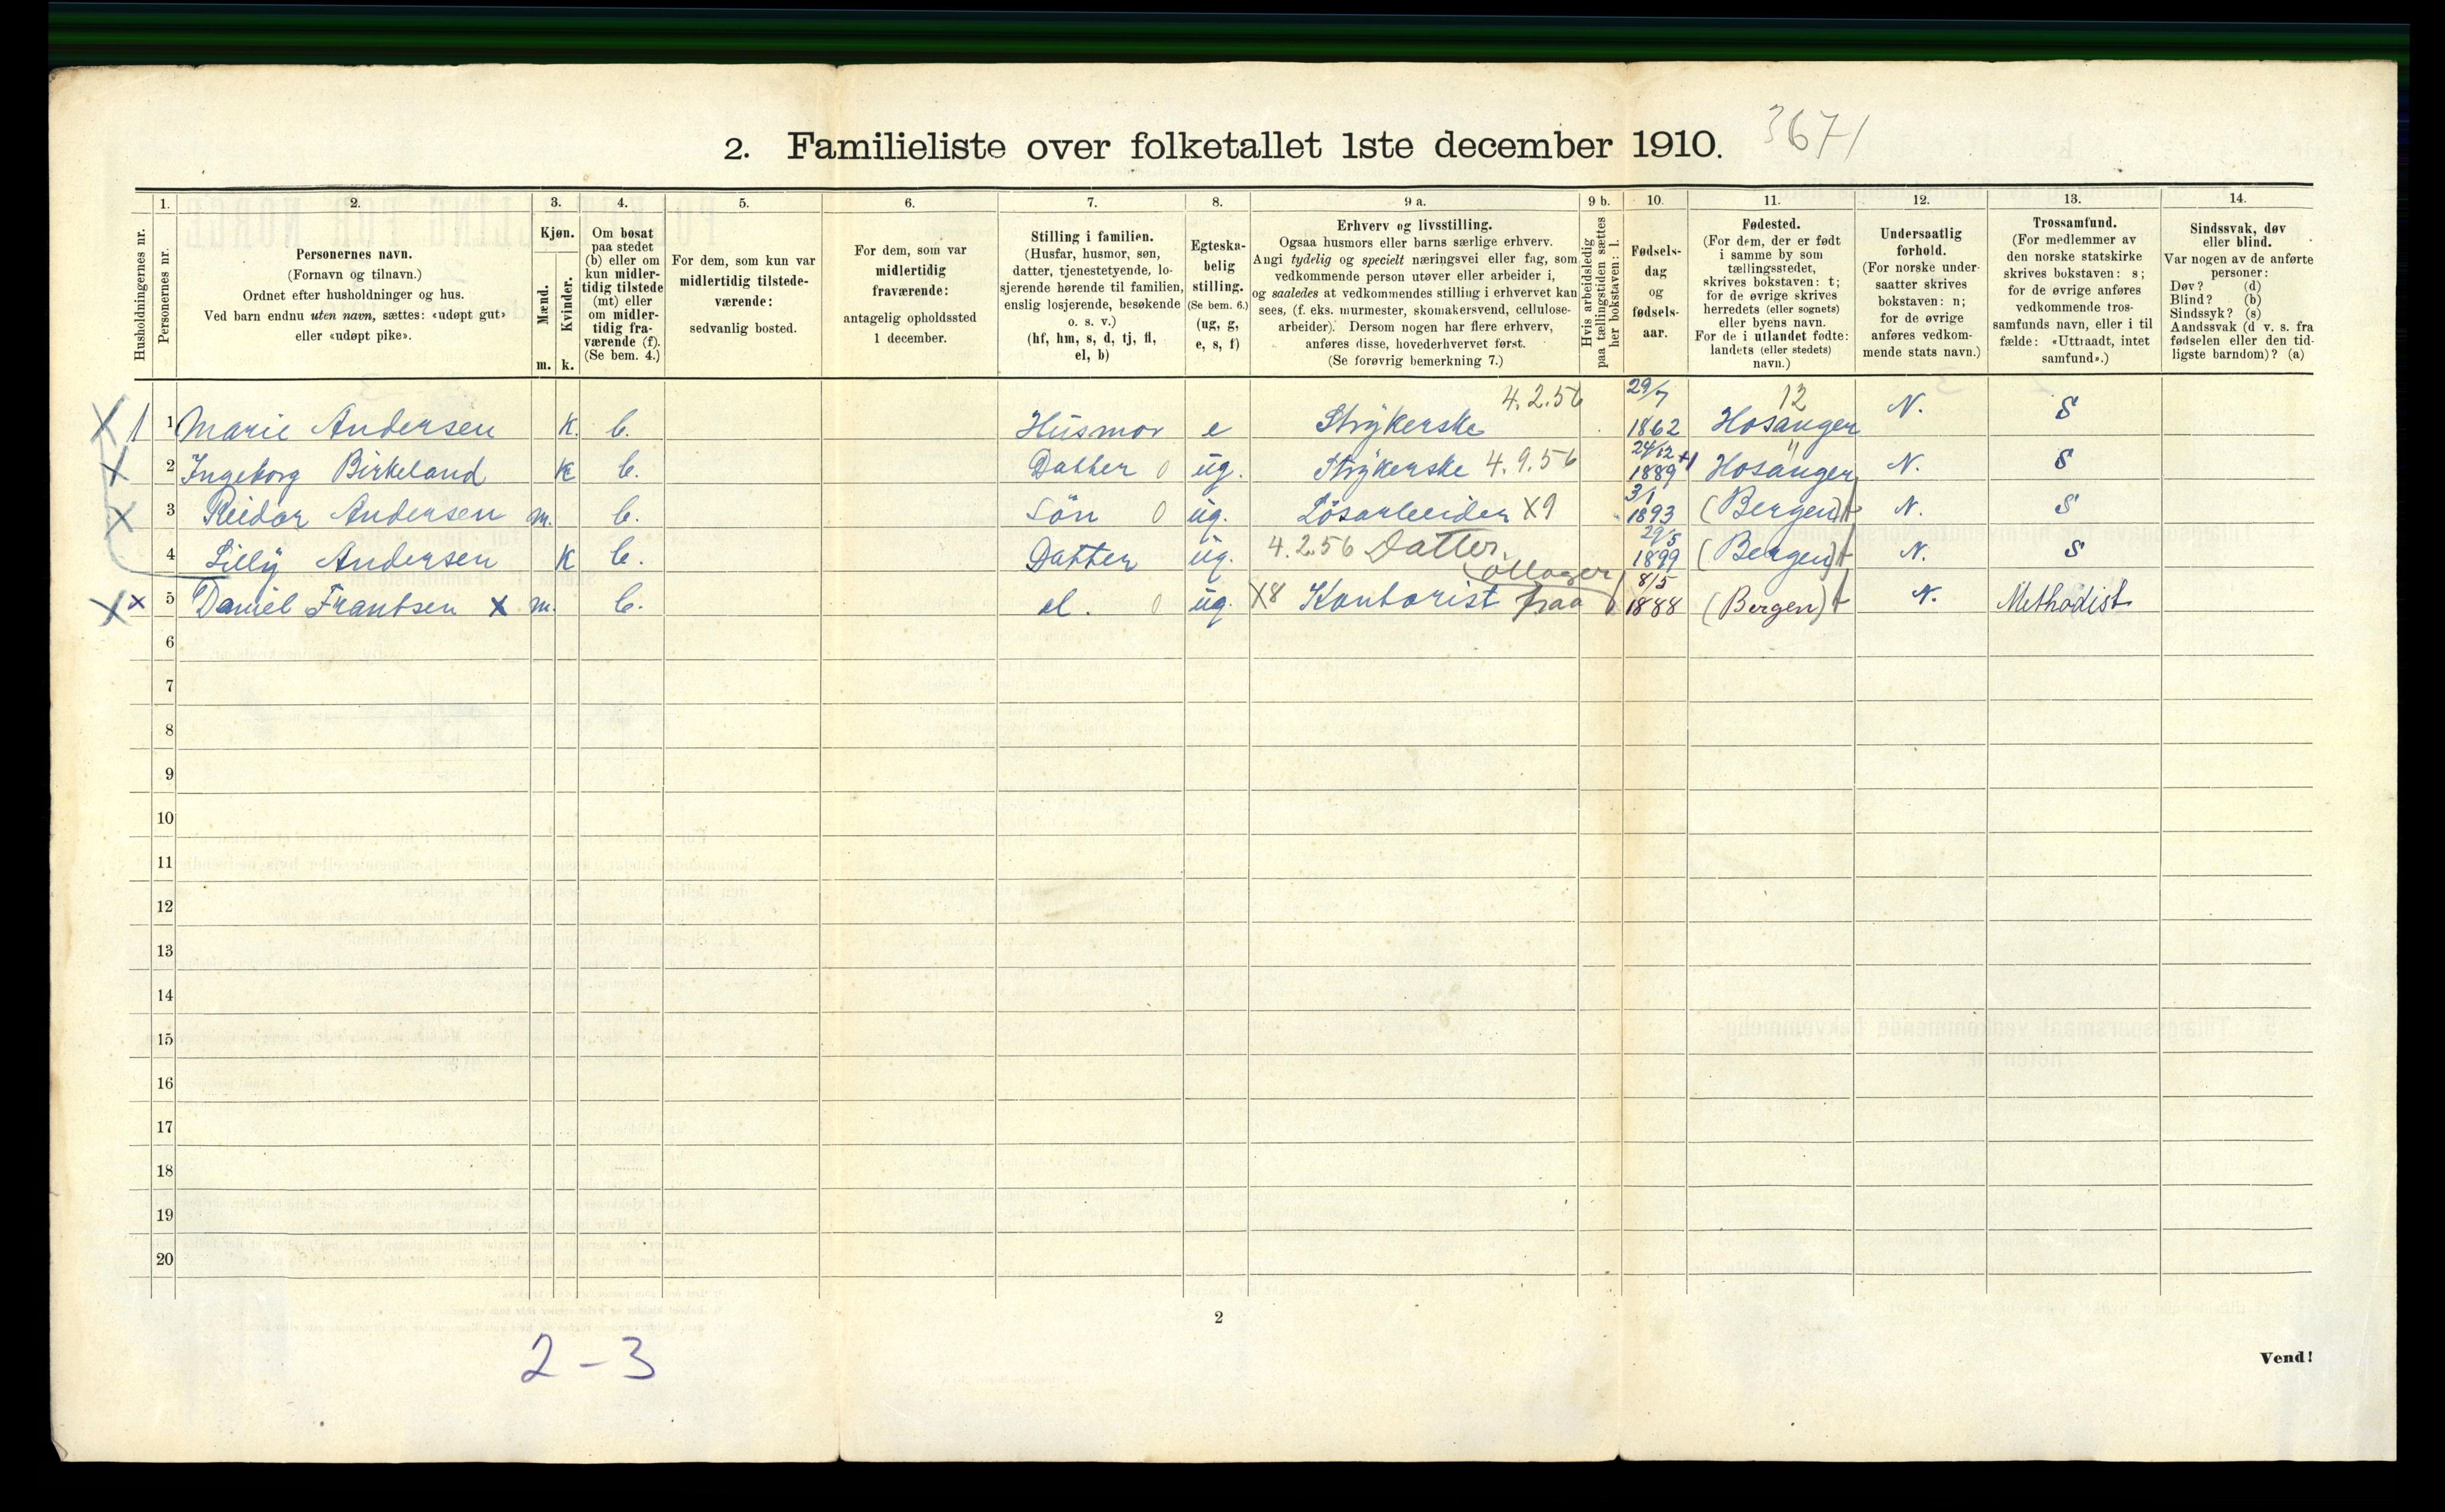 2. Familieliste over folketallet 1ste december 1910. 3671
Husholdningernes nr.
1. Personernes nr.
2. Personernes navn.
(Fornavn og tilnavn.)
Ordnet efter husholdninger og hus.
Ved barn endnu uten navn, sættes: «udøpt gut»
eller «udøpt pike».
3. Kjøn.
Mænd. m.
Kvinder. k.
4. Om bosat
paa stedet
(b) eller om
kun midler-
tidig tilstede
(mt) eller
om midler-
tidig fra-
værende (f).
(Se bem. 4.)
5. For dem, som kun var
midlertidig tilstede-
værende:
sedvanlig bosted.
6. For dem, som var
midlertidig
fraværende:
antagelig opholdssted
1 december.
7. Stilling i familien.
(Husfar, husmor, søn,
datter, tjenestetyende, lo-
sjerende hørende til familien,
enslig losjerende, besøkende
o. s. v.)
(hf, hm, s, d, tj, fl,
el, b)
8. Egteska-
belig
stilling.
(Se bem. 6.)
(ug, g,
e, s, f)
9 a. Erhverv og livsstilling.
Ogsaa husmors eller barns særlige erhverv.
Angi tydelig og specielt næringsvei eller fag, som
vedkommende person utøver eller arbeider i,
og saaledes at vedkommendes stilling i erhvervet kan
sees, (f. eks. murmester, skomakersvend, cellulose-
arbeider). Dersom nogen har flere erhverv,
anføres disse, hovederhvervet først.
(Se forøvrig bemerkning 7.)
9 b. Hvis arbeidsledig
paa tællingstiden sættes
her bokstaven: l.
10. Fødsels-
dag
og
fødsels-
aar.
11. Fødested.
(For dem, der er født
i samme by som
tællingsstedet,
skrives bokstaven: t;
for de øvrige skrives
herredets (eller sognets)
eller byens navn.
For de i utlandet fødte:
landets (eller stedets)
navn.)
12. Undersaatlig
forhold.
(For norske under-
saatter skrives
bokstaven: n;
for de øvrige
anføres vedkom-
mende stats navn.)
13. Trossamfund.
(For medlemmer av
den norske statskirke
skrives bokstaven: s;
for de øvrige anføres
vedkommende tros-
samfunds navn, eller i til
fælde: «Uttraadt, intet
samfund».)
14. Sindssvak, døv
eller blind.
Var nogen av de anførte
personer:
Døv? (d)
Blind? (b)
Sindssyk? (s)
Aandssvak (d v. s. fra
fødselen eller den tid-
ligste barndom)? (a)
X 1 1 Marie Andersen K. b. Husmor e Strykerske 4.2.56 29/7 1862 Hosanger 12 N. S
X 2 Ingeborg Birkeland K b. Datter 0 ug. Strykerske 4.9.56 24/12 1889 +1 Hosanger " N. S
X 3 Reidar Andersen m. b. Sön 0 ug. Lösarbeider X9 3/1 1893 (Bergen) t N. S
4 Lilly Andersen K b. Datter ug. 4.2.56 Datter 29/5 1899 (Bergen) t N. S
X x 5 Daniel Frantsen x m. b. el. 0 ug. X8 Kontorist paa 8/5 1888 (Bergen) t N. Methodist
6
7
8
9
10
11
12
13
14
15
16
17
18
19
20
2
2-3
Vend!